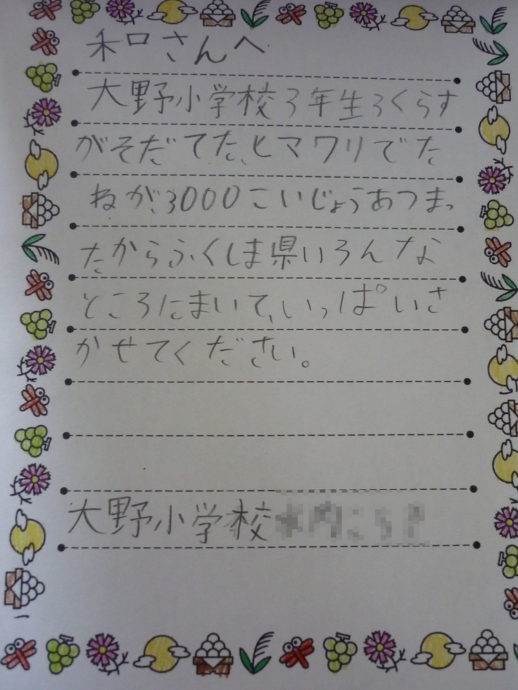 和口さんへ
大野小学校3年生3くらす
がそだてた、ヒマワリでた
ねが、3000こいじょうあつまっ
たからふくしま県いろんな
ところにまいて、いっぱいさ
かせてください。
大野小学校